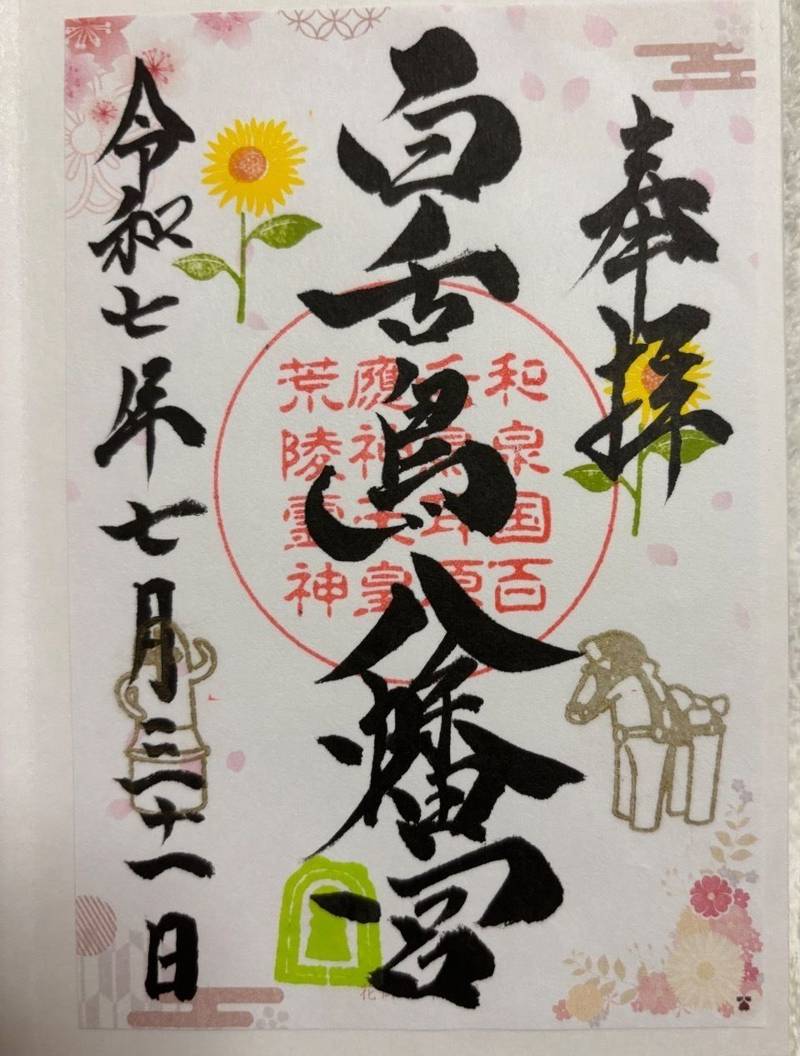 奉拝
百舌鳥八幡宮
令和七年七月三十一日
和泉国百
耳原
應神天皇
荒陵霊神